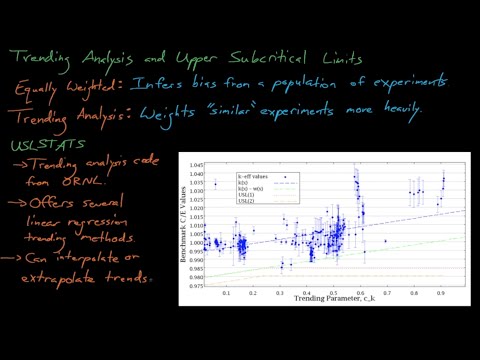 Trending Analysis and Upper Subcritical Limits
Equally Weighted: Infers bias from a population of experiments
Trending Analysis: Weights "similar" experiments more heavily.
USLSTATS
→Trending analysis code
from ORNL.
→Offers several
linear regression
trending methods.
→Can interpolate or
extrapolate trends.
Benchmark C/E Values
1.045
1.040
1.035
1.030
1.025
1.020
1.015
1.010
1.005
1.000
0.995
0.990
0.985
0.980
0.975
k-eff values
k(x)
k(x) - w(x)
USL(1)
USL(2)
0.1 0.2 0.3 0.4 0.5 0.6 0.7 0.8 0.9
Trending Parameter, c_k